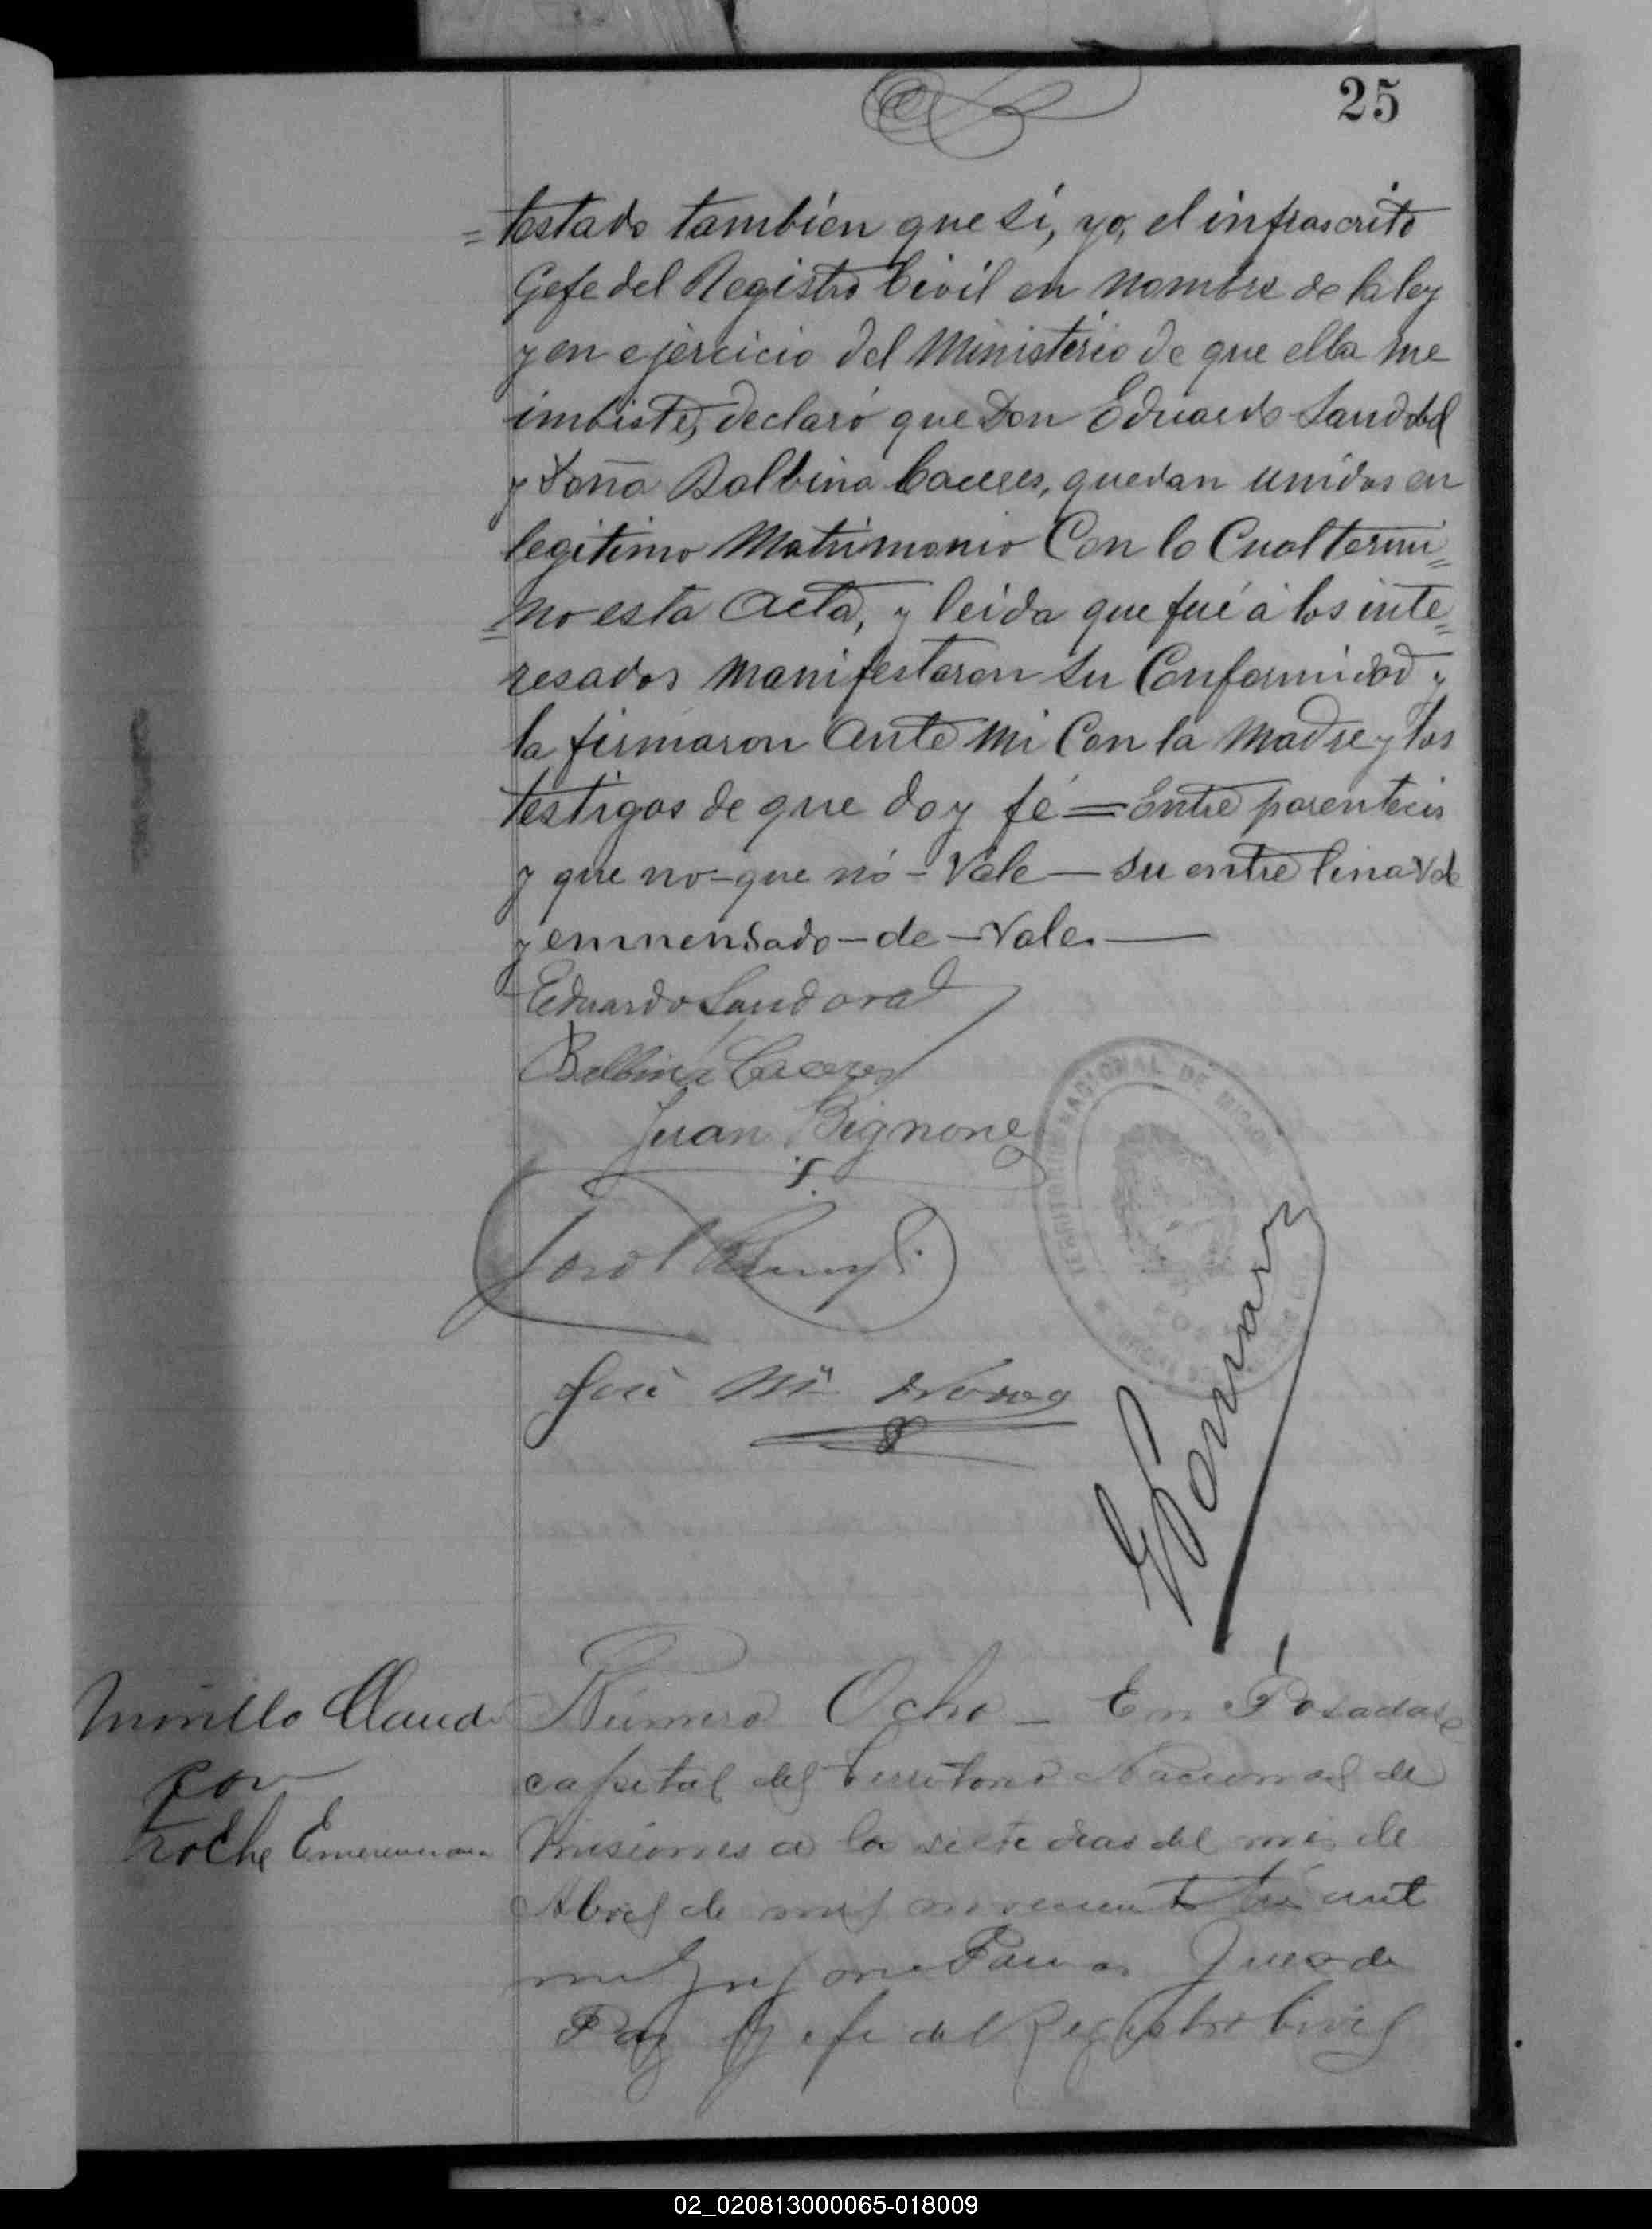 25
=testado también que sí, yo, el infrascrito
Gefe del Registro Civil en nombre de la ley
y en ejercicio del Ministerio de que ella me
imbiste, declaró que Don Eduardo Sandobal
y Doña Balbina Caceres, quedan unidos en
legitimo Matrimonio Con lo Cual termi=
=no esta Acta, y leida que fué á los inte=
resados manifestaron su Conformidad y
la firmaron Ante mi Con la Madre y los
testigos de que doy fé = Entre parentecis
y que no - que nó - Vale - su entre lina Vale
y enmendado - de - Vale -
Eduardo Sandoval
Balbina Caceres
Juan Bignone
TERRITORIO NACIONAL DE MISIONES
José Mª
Murillo Claudio
con
Roche
Número Ocho - En Posadas
capital del Territorio Nacional de
Misiones a los siete dias del mes de
Abril de mil novecientos tres ante
mi Juez de
Paz y Gefe del Registro Civil
02_020813000065-018009